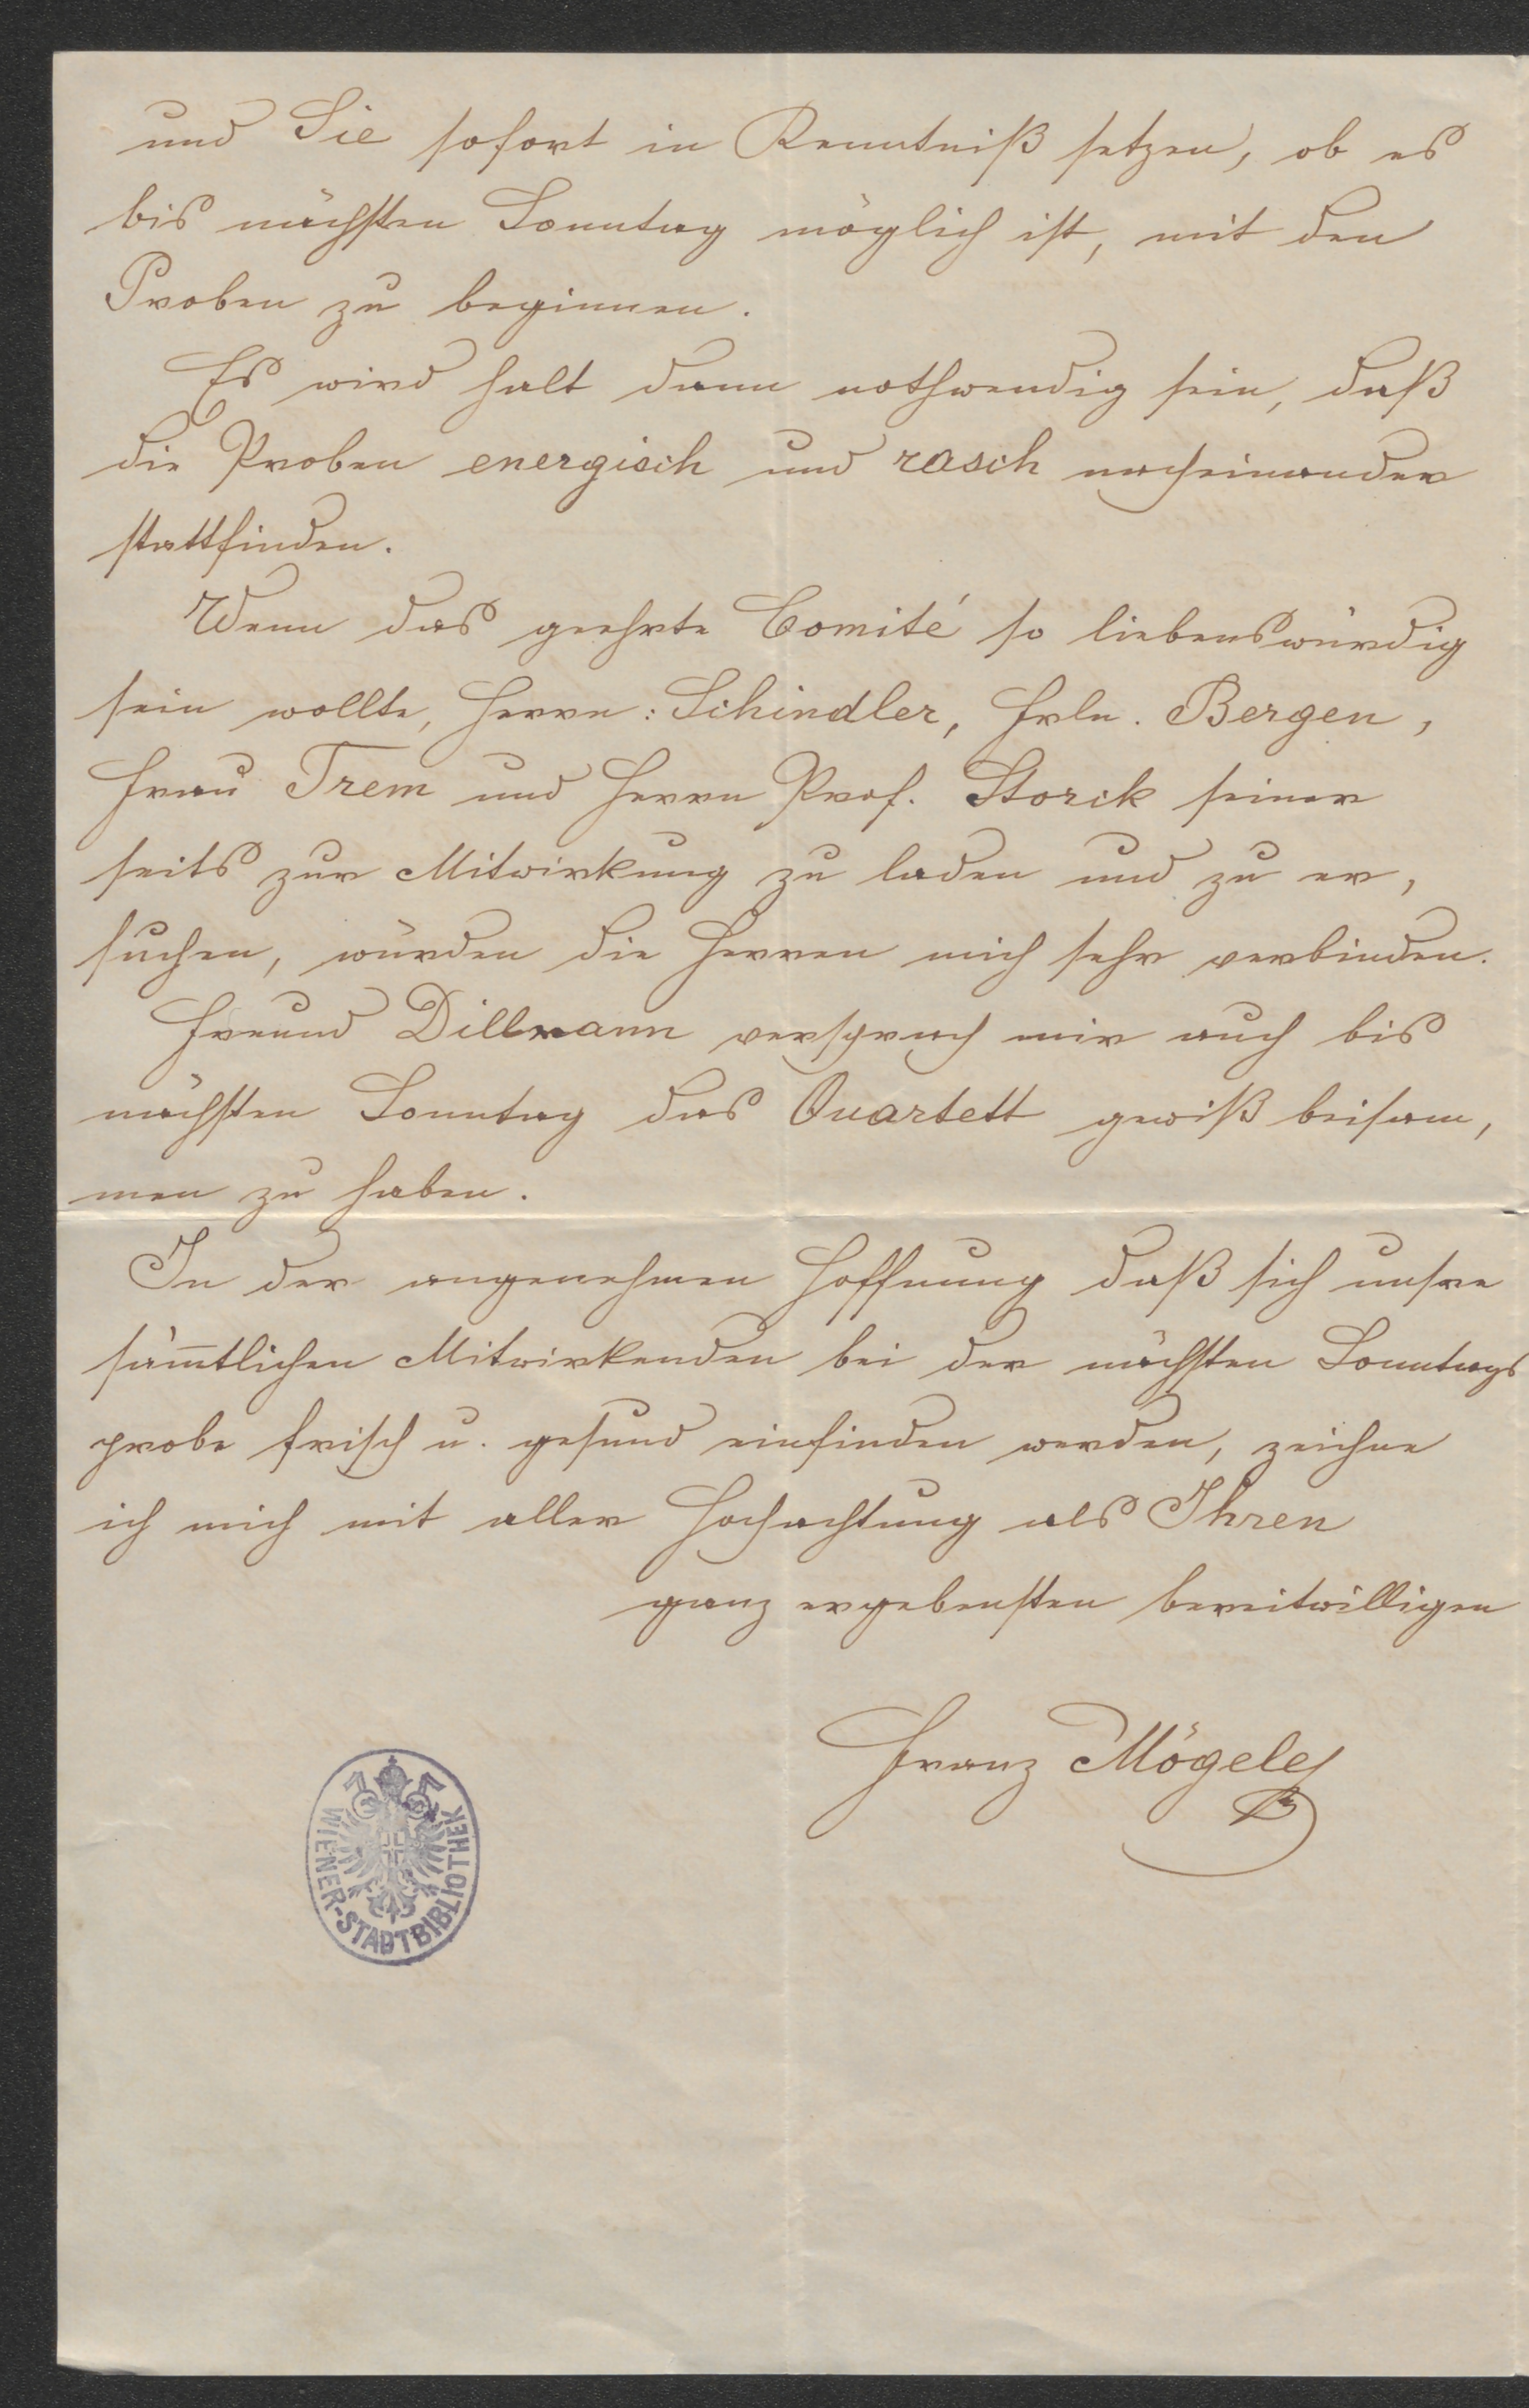 und Sie sofort in Kenntniß setzen, ob es
bis nächsten Sonntag möglich ist, mit den
Proben zu beginnen.
Es wird halt dann nothwendig sein, daß
die Proben energisch und rasch nacheinander
stattfinden.
Wenn das geehrte Comité so liebenswürdig
sein wollte, Herrn: Schindler, Frln. Bergen,
Frau Trem und Herrn Prof. Storck seiner
seits zur Mitwirkung zu laden und zu er,
suchen, würden die Herren mich sehr verbinden.
Freund Dillmann versprach mir auch bis
nächsten Sonntag das Quartett gewiß beisam,
men zu haben.
In der angenehmen Hoffnung daß sich unsre
säm̅tlichen Mitwirkenden bei der nächsten Sonntags
probe frisch u. gesund einfinden werden, zeichne
ich mich mit aller Hochachtung als Ihren
ganz ergebensten bereitwilligen
Franz Mögele
WIENER-STADTBIBLIOTHEK